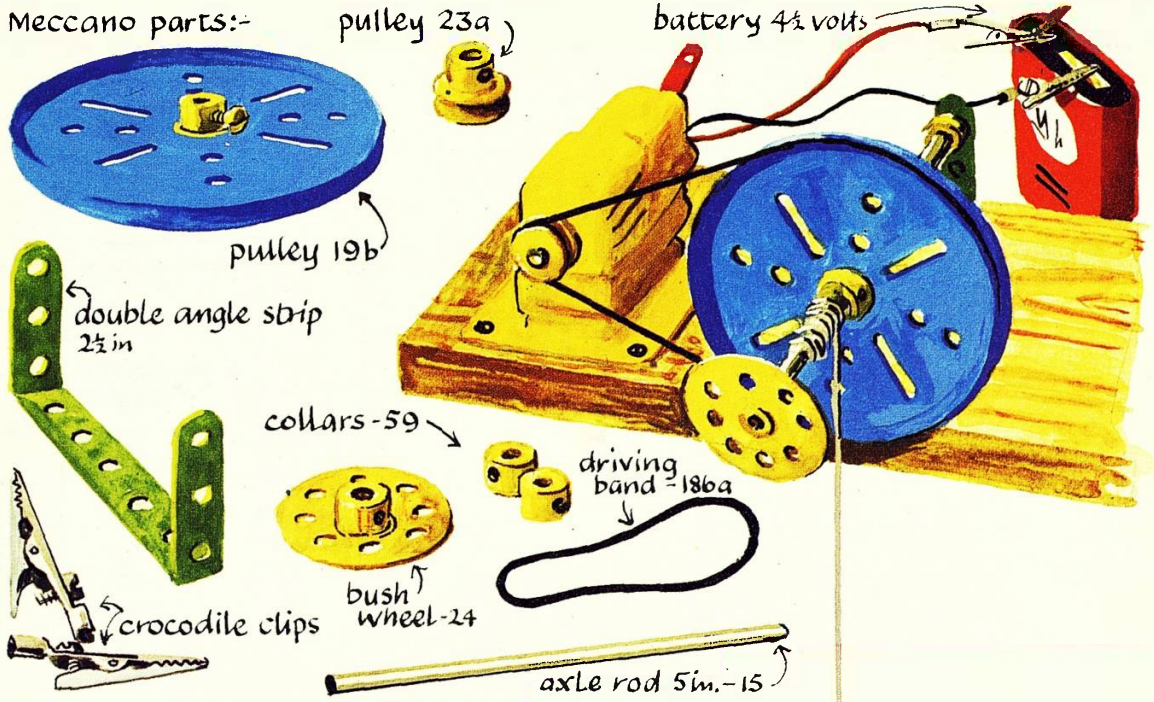 Meccano parts:-
pulley 23a
battery 4½ volts
pulley 19b
double angle strip
2½ in
collars-59
driving
band-186a
bush
wheel-24
crocodile clips
axle rod 5in.-15